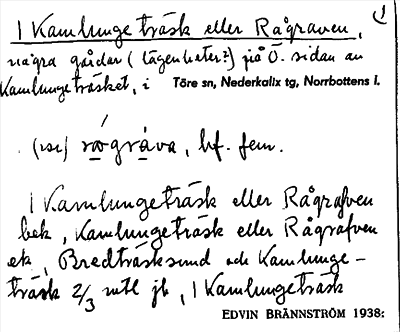 1 Kamlunge träsk eller Rågraven, 1
några gårdar (lägenheter?) på Ö. sidan av
Kamlungeträsket, i Töre sn, Nederkalix tg, Norrbottens l.
(ɩsɩ) rågråva, bf. fem.
1 Kamlungeträsk eller Rågrafven
bek, Kamlungeträsk eller Rågrafven
ek, Bredträsksund och Kamlunge-
träsk 2/3 mtl jb, 1 Kamlungeträsk
EDVIN BRÄNNSTRÖM 1938: